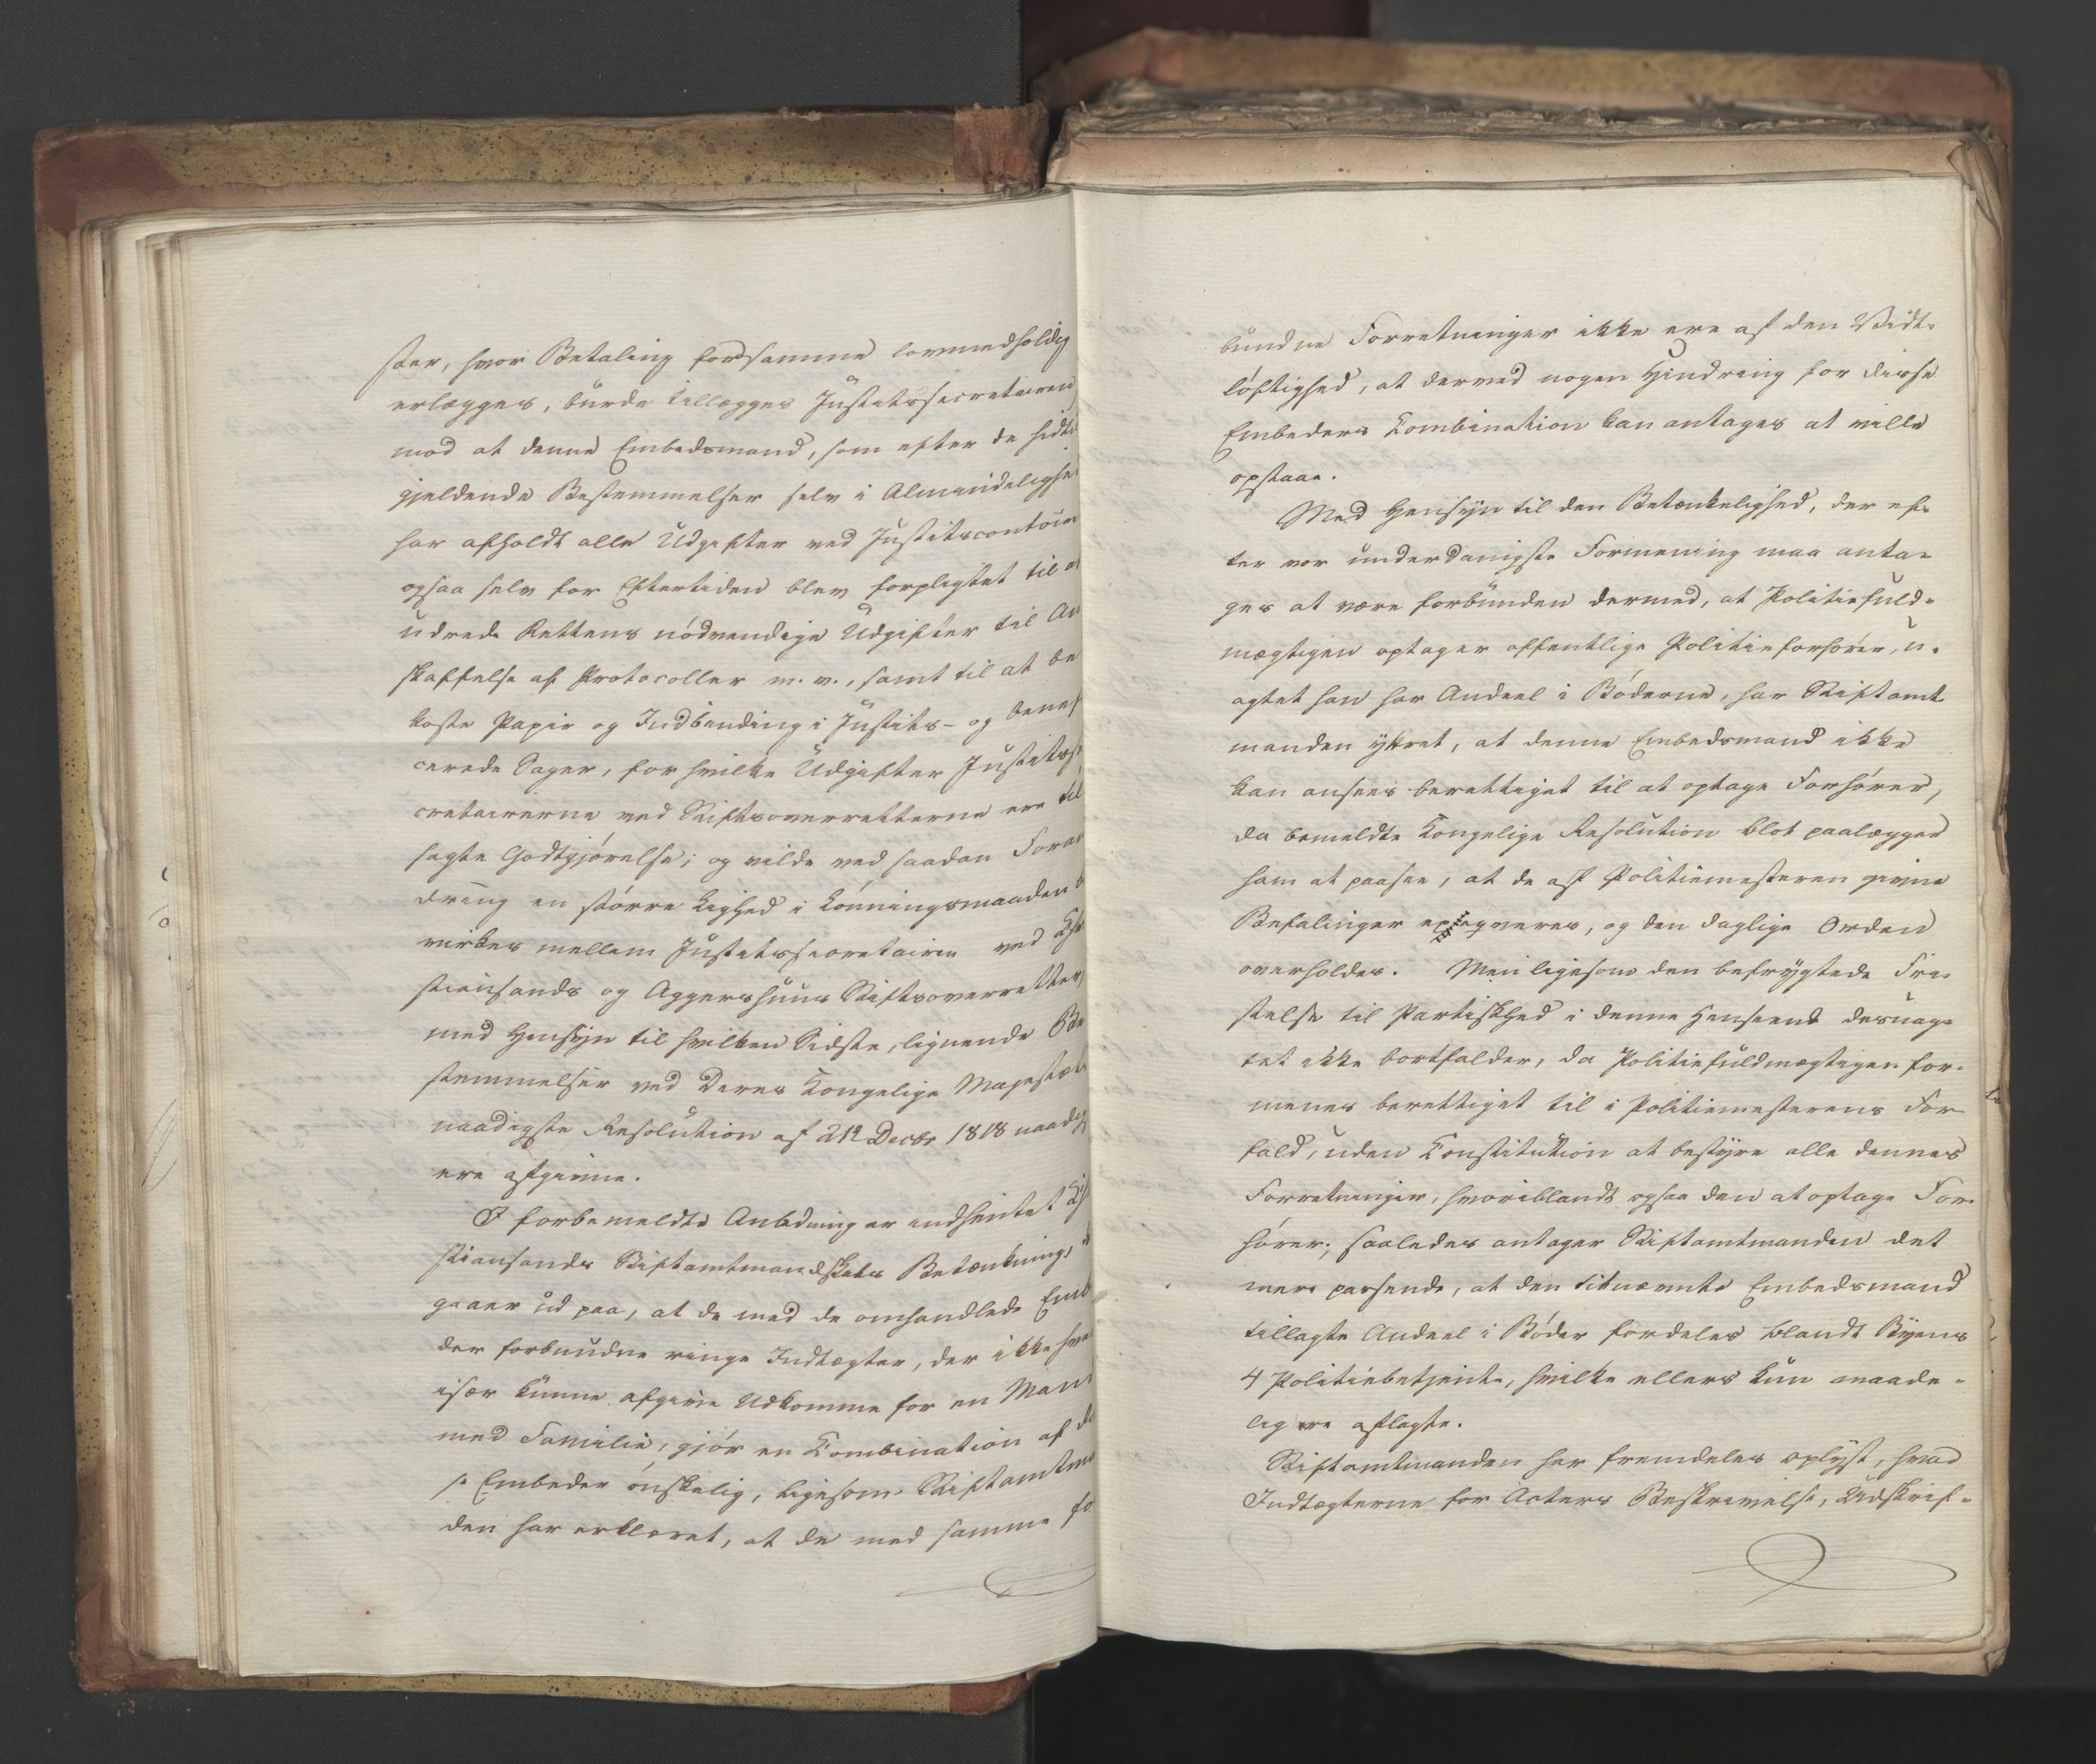 ster, hvor Betaling for samme lovmedholdig
erlægges, burde tillægges Justitssecretairen
mod at denne Embedsmand, som efter de hidtil
gjeldende Bestemmelser selv i Almindelighe
har afholdt alle Udgifter ved Justitscontoir
ogsaa selv for Eftertiden blev forpligtet til at
udrede Rettens nödvendige Udgifter til An
skaffelse af Protocoller m. v., samt til at be
koste Papir og Indbinding i Justits- og benef
cerede Sager, for hvilke Udgifter Justitsse
cretairerne ved Stiftsoverretterne ere til
sagte Godtgjörelse; og vilde ved saadan Foran
dring en större Lighed i Lönningsmaaden be
virkes mellem Justitssecretairen ved Chri
stiansands og Aggershuus Stiftsoverretter,
med Hensyn til hvilken Sidste, lignende Be
stemmelser ved Deres Kongelige Majestæts
naadigste Resolution af 21de Decbr 1818 naadigst
ere afgivne.
I forbemeldte Anledning er indhentet Chri
stiansands Stiftamtmandskabs Betænkning,
gaaer ud paa, at de med de omhandlede Emb
der forbundne ringe Indtægter, der ikke hve
især kunne afgive Udkomme for en Mand
med Familie, gjör en Combination af di
se Embeder önskelig, ligesom Stiftamtma
den har erklæret, at de med samme fo
bundne Forretninger ikke ere af den Vidt-
löftighed, at derved nogen Hindring for disse
Embeders Combination kan antages at ville
opstaae.
Med Hensyn til den Betænkelighed, der ef-
ter vor underdanigste Formening maa anta-
ges at være forbunden dermed, at Politiefuld-
mægtigen optager offentlige Politieforhörer, u-
agtet han har Andeel i Böderne, har Stiftamt
manden yttret, at denne Embedsmand ikke
kan ansees berettiget til at optage Forhörer,
da bemeldte Kongelige Resolution blot paalægger
ham at paasee, at de af Politiemesteren givne
Befalinger exeqveres, og den daglige Orden
overholdes. Men ligesom den befrygtede Fri-
stelse til Partiskhed i denne Henseende desuag-
tet ikke bortfalder, da Politiefuldmægtigen for-
menes berettiget til i Politiemesterens For
fald, uden Constitution at bestyre alle dennes
Forretninger, hvoriblandt ogsaa den at optage For-
hörer; saaledes antager Stiftamtmanden det
mere passende, at den sidtnævnte Embedsmand
tillagte Andeel i Böder fordeles blandt Byens
4 Politiebetjente, hvilke ellers kun maade-
lig ere aflagte.
Stiftamtmanden har fremdeles oplyst, hvad
Indtægterne for Acters Beskrivelse, Udskrif-